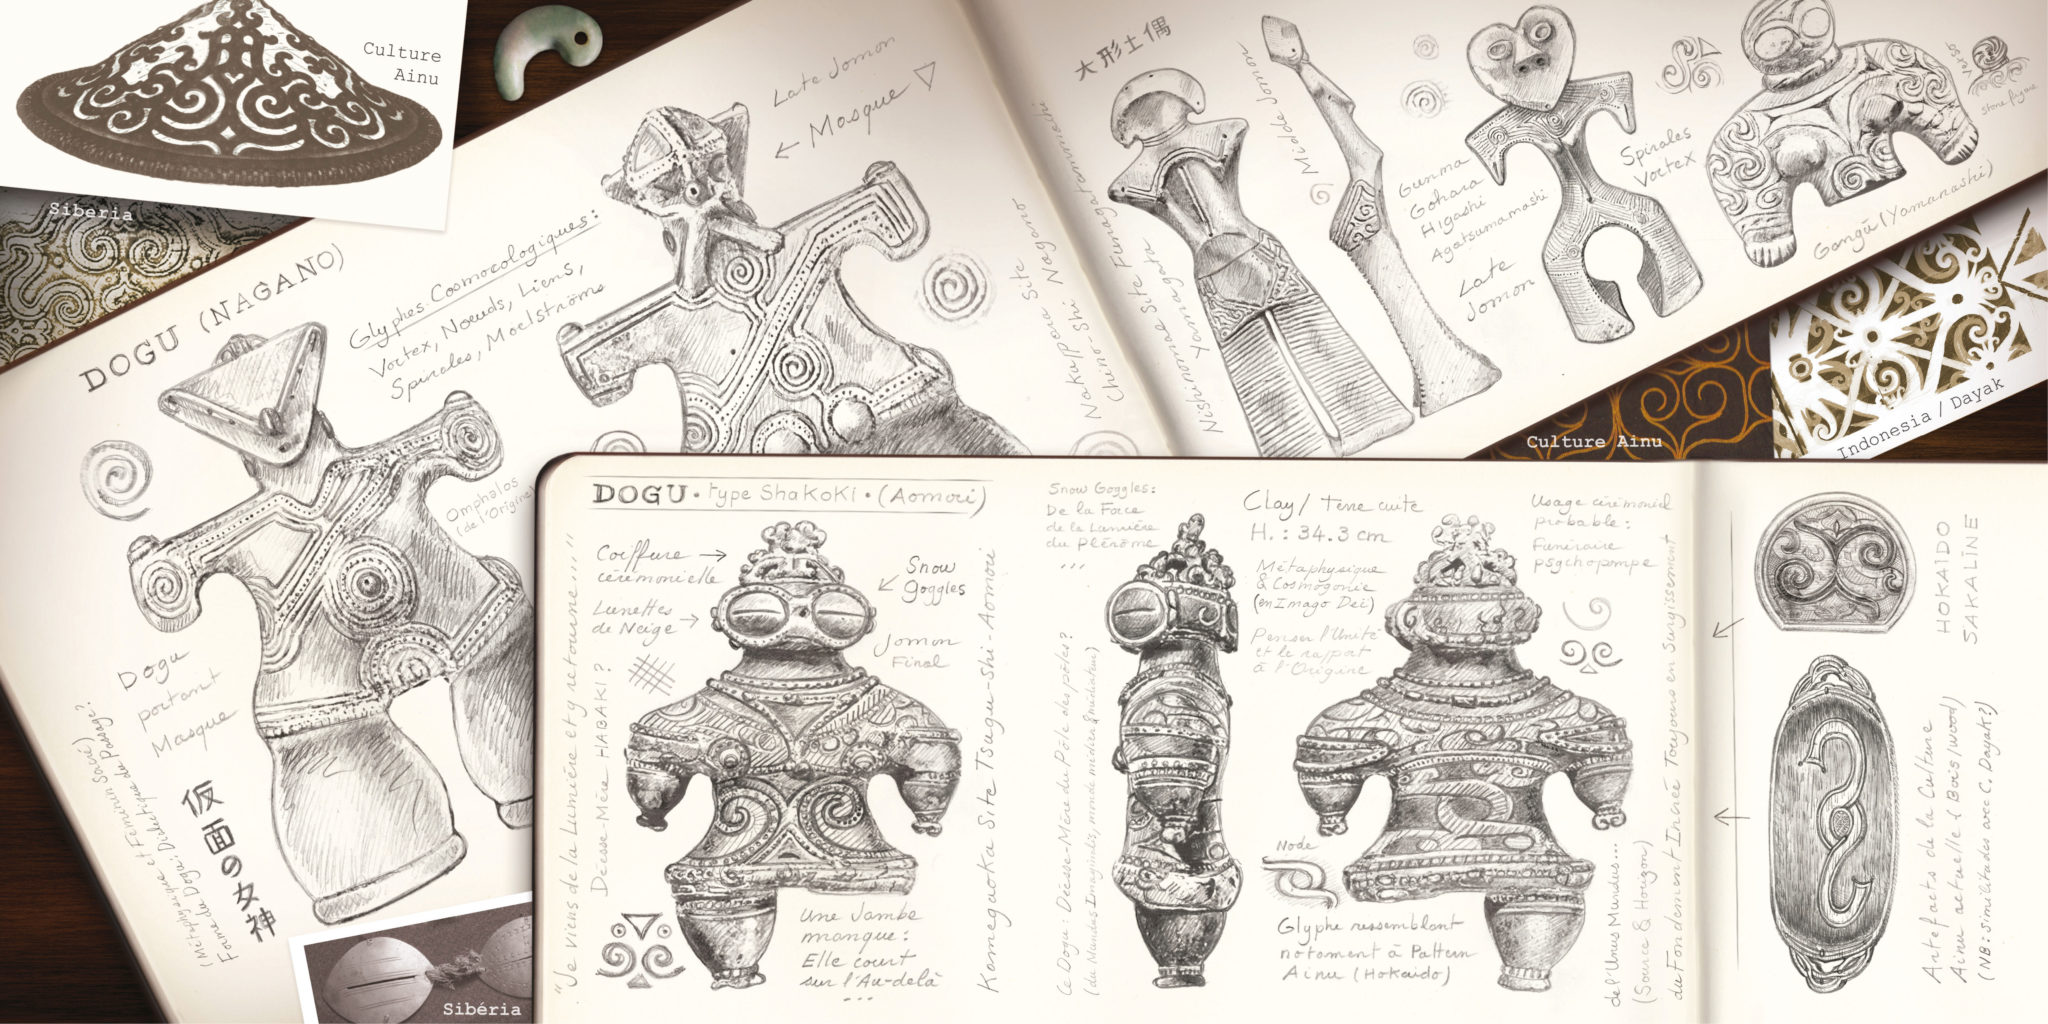 Culture
Ainu
Siberia
DOGU (NAGANO)
Glyphes Cosmoecologiques:
Vortex, Noeuds, Liens,
Spirales, Maelströms
Late Jomon
← Masque
Omphalos
(de l'Origine)
Dogu
portant
Masque
仮面の女神
(Métaphysique et Féminin Sacré)
Forme du Dogu: Dialectique du Passage?
Site
Nakappara Site
Chino-Shi Nagano
大形土偶
Nishinomae Site Funagatamachi
Yamagata
Middle Jomon
Gunma
Gohara
Higashi
Agatsumamachi
Late
Jomon
Spirales
Vortex
Verso
stone figure
Gongū (Yamanashi)
Culture Ainu
Indonesia / Dayak
Sibéria
DOGU • type Shakoki • (Aomori)
Coiffure →
cérémonielle
Lunettes
de Neige →
Snow
goggles
Jomon
Final
"Je viens de la Lumière et y retourne..."
Déesse-Mère HABAKI ?
Une Jambe
manque :
Elle court
sur l'Au-delà
...
Kamegaoka Site Tsugaru-shi - Aomori
Snow Goggles:
De la Force
de la Lumière
du Plérôme
...
Ce Dogu : Déesse-Mère du Pôle des pôles ?
(du Mundus Imaginalis, monde médian & médiateur)
Clay / Terre cuite
H. : 34.3 cm
Métaphysique
& Cosmogonie
(en Imago Dei)
Penser l'Unité
et le rapport
à l'Origine
Usage cérémoniel
probable :
Funéraire
psychopompe
Node
Glyphe ressemblant
notamment à Pattern
Ainu (Hokaido)
de l'Unus Mundus...
(Source & Horizon)
du Fondement Incréé Toujours en Surgissement
HOKAIDO
SAKALINE
Artefacts de la Culture
Ainu actuelle (Bois/wood)
(NB: similitudes avec C. Dayak?)